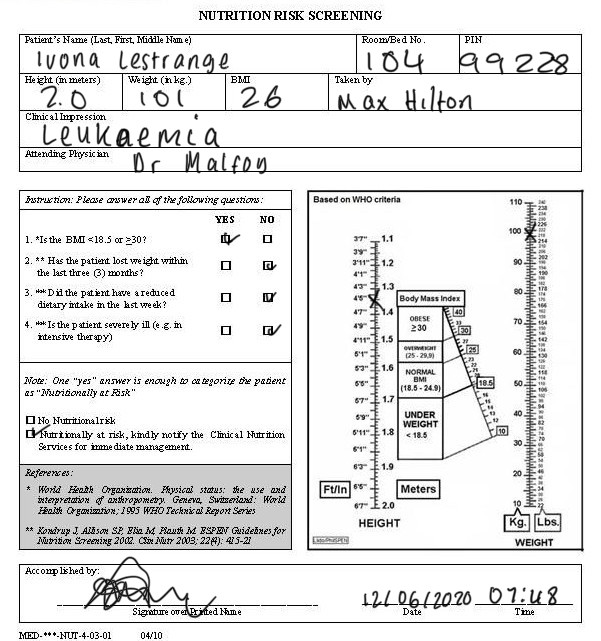 NUTRITION RISK SCREENING
Patient's Name (Last, First, Middle Name) Room/Bed No. PIN
Ivona Lestrange 104 99228
Height (in meters) Weight (in kg.) BMI Taken by
2.0 101 26 Max Hilton
Clinical Impression
Leukaemia
Attending Physician
Dr Malfoy
Instruction: Please answer all of the following questions:
YES NO
1. *Is the BMI <18.5 or ≥30?
2. ** Has the patient lost weight within
the last three (3) months?
3. ** Did the patient have a reduced
dietary intake in the last week?
4. ** Is the patient severely ill (e.g. in
intensive therapy)
Note: One "yes" answer is enough to categorize the patient
as "Nutritionally at Risk"
No Nutritional risk
Nutritionally at risk, kindly notify the Clinical Nutrition
Services for immediate management.
References:
* World Health Organization. Physical status: the use and
interpretation of anthropometry. Geneva, Switzerland: World
Health Organization; 1995 WHO Technical Report Series
** Kondrup J, Allison SP, Elia M, Plauth M. ESPEN Guidelines for
Nutrition Screening 2002. Clin Nutr 2003; 22(4): 415-21
Based on WHO criteria
3'7" 1.1
3'9"
3'11" 1.2
4'1"
4'3" 1.3
4'5"
4'7" 1.4
4'9"
4'11" 1.5
5'1"
5'3" 1.6
5'5"
5'7" 1.7
5'9"
5'11" 1.8
6'1"
6'3" 1.9
6'5"
6'7" 2.0
Ft/In Meters
HEIGHT
Body Mass Index
OBESE
≥30
OVERWEIGHT
(25 - 29,9)
NORMAL
BMI
(18.5 - 24.9)
UNDER
WEIGHT
< 18.5
40
30
25
18.5
10
110
100
90
80
70
60
50
40
30
20
10
Kg. Lbs.
WEIGHT
Accomplished by:
Signature over Printed Name
12/06/2020 07:48
Date Time
MED-***-NUT-4-03-01 04/10